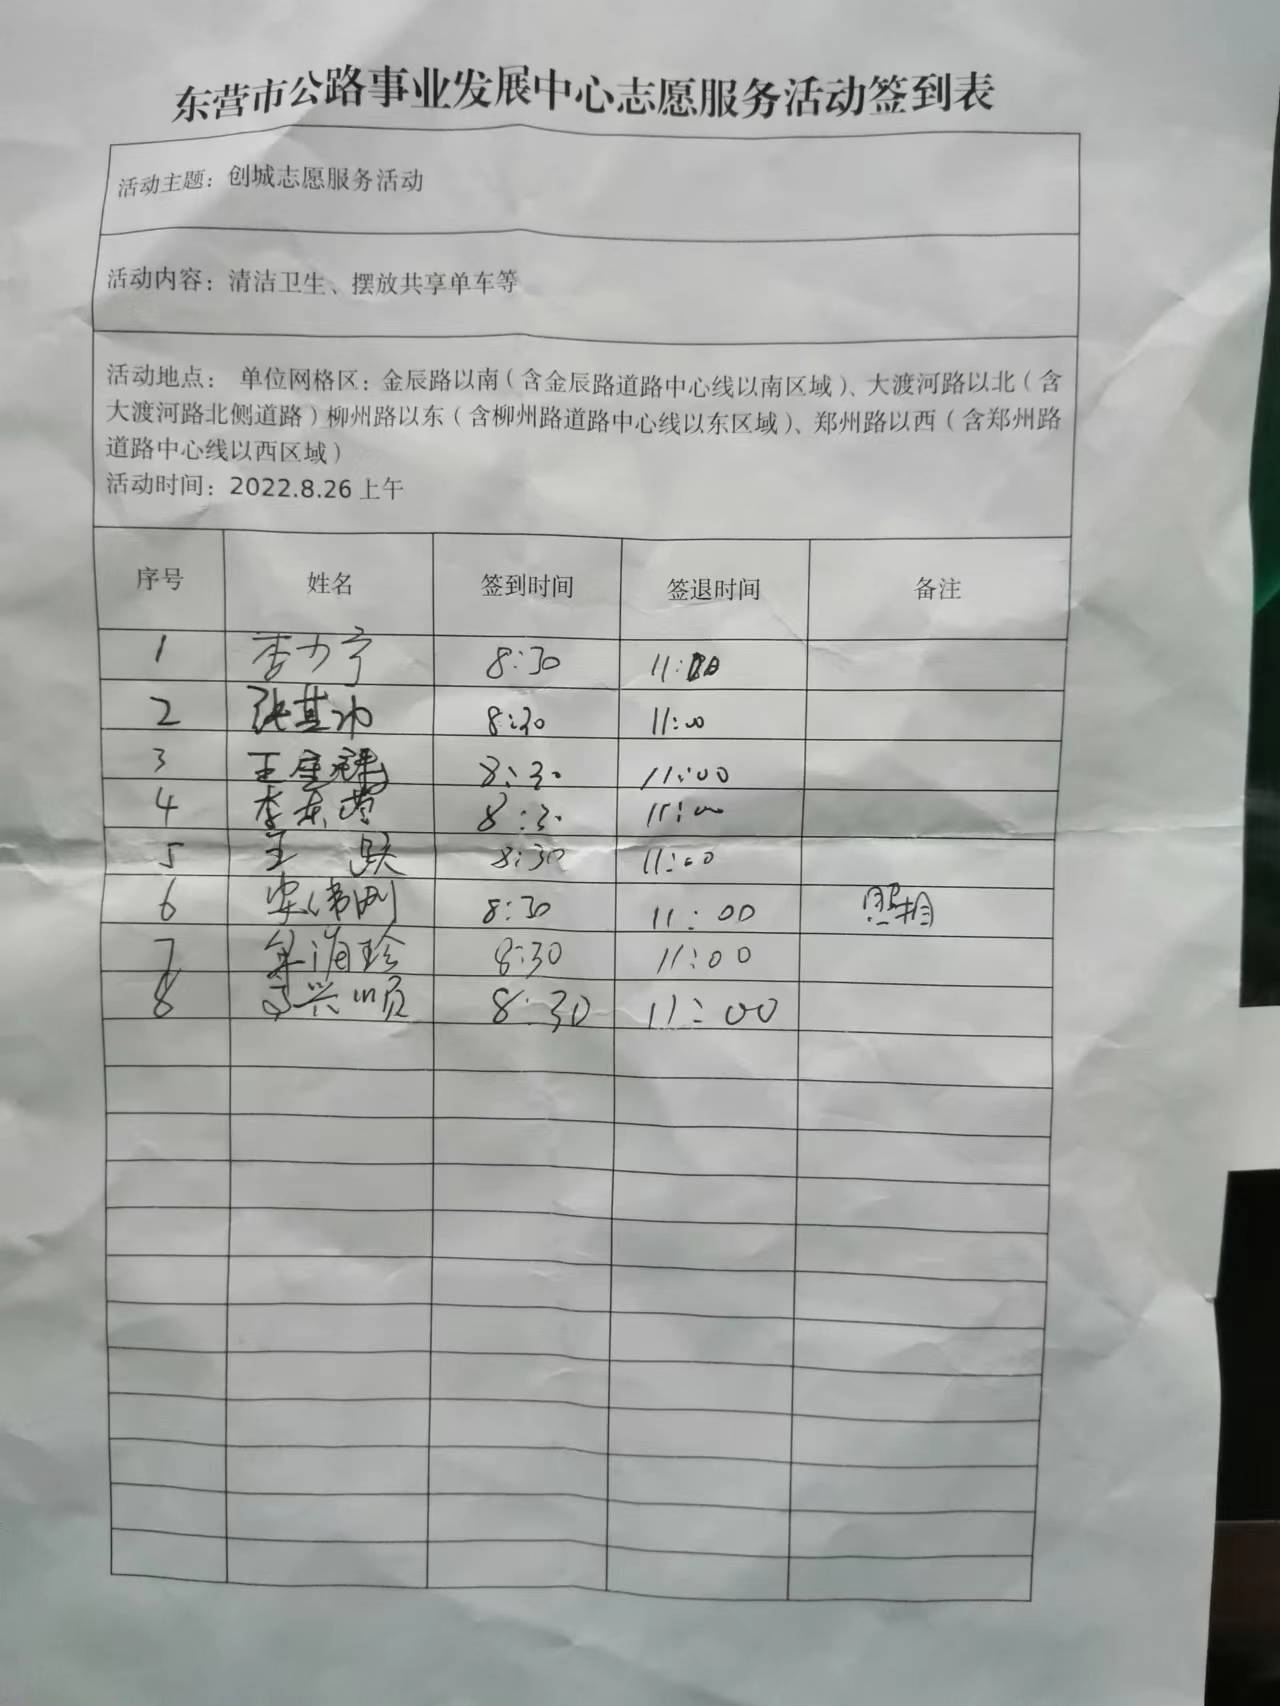 东营市公路事业发展中心志愿服务活动签到表
活动主题：创城志愿服务活动
活动内容：清洁卫生、摆放共享单车等
活动地点： 单位网格区：金辰路以南（含金辰路道路中心线以南区域）、大渡河路以北（含
大渡河路北侧道路）柳州路以东（含柳州路道路中心线以东区域）、郑州路以西（含郑州路
道路中心线以西区域）
活动时间：2022.8.26 上午
序号 姓名 签到时间 签退时间 备注
1 李力宁 8:30
2 8:30 11:00
3 8:30 11:00
4 李东营 8:30 11:00
5 8:30 11:00
6 8:30 11:00 照相
7 8:30 11:00
8 8:30 11:00